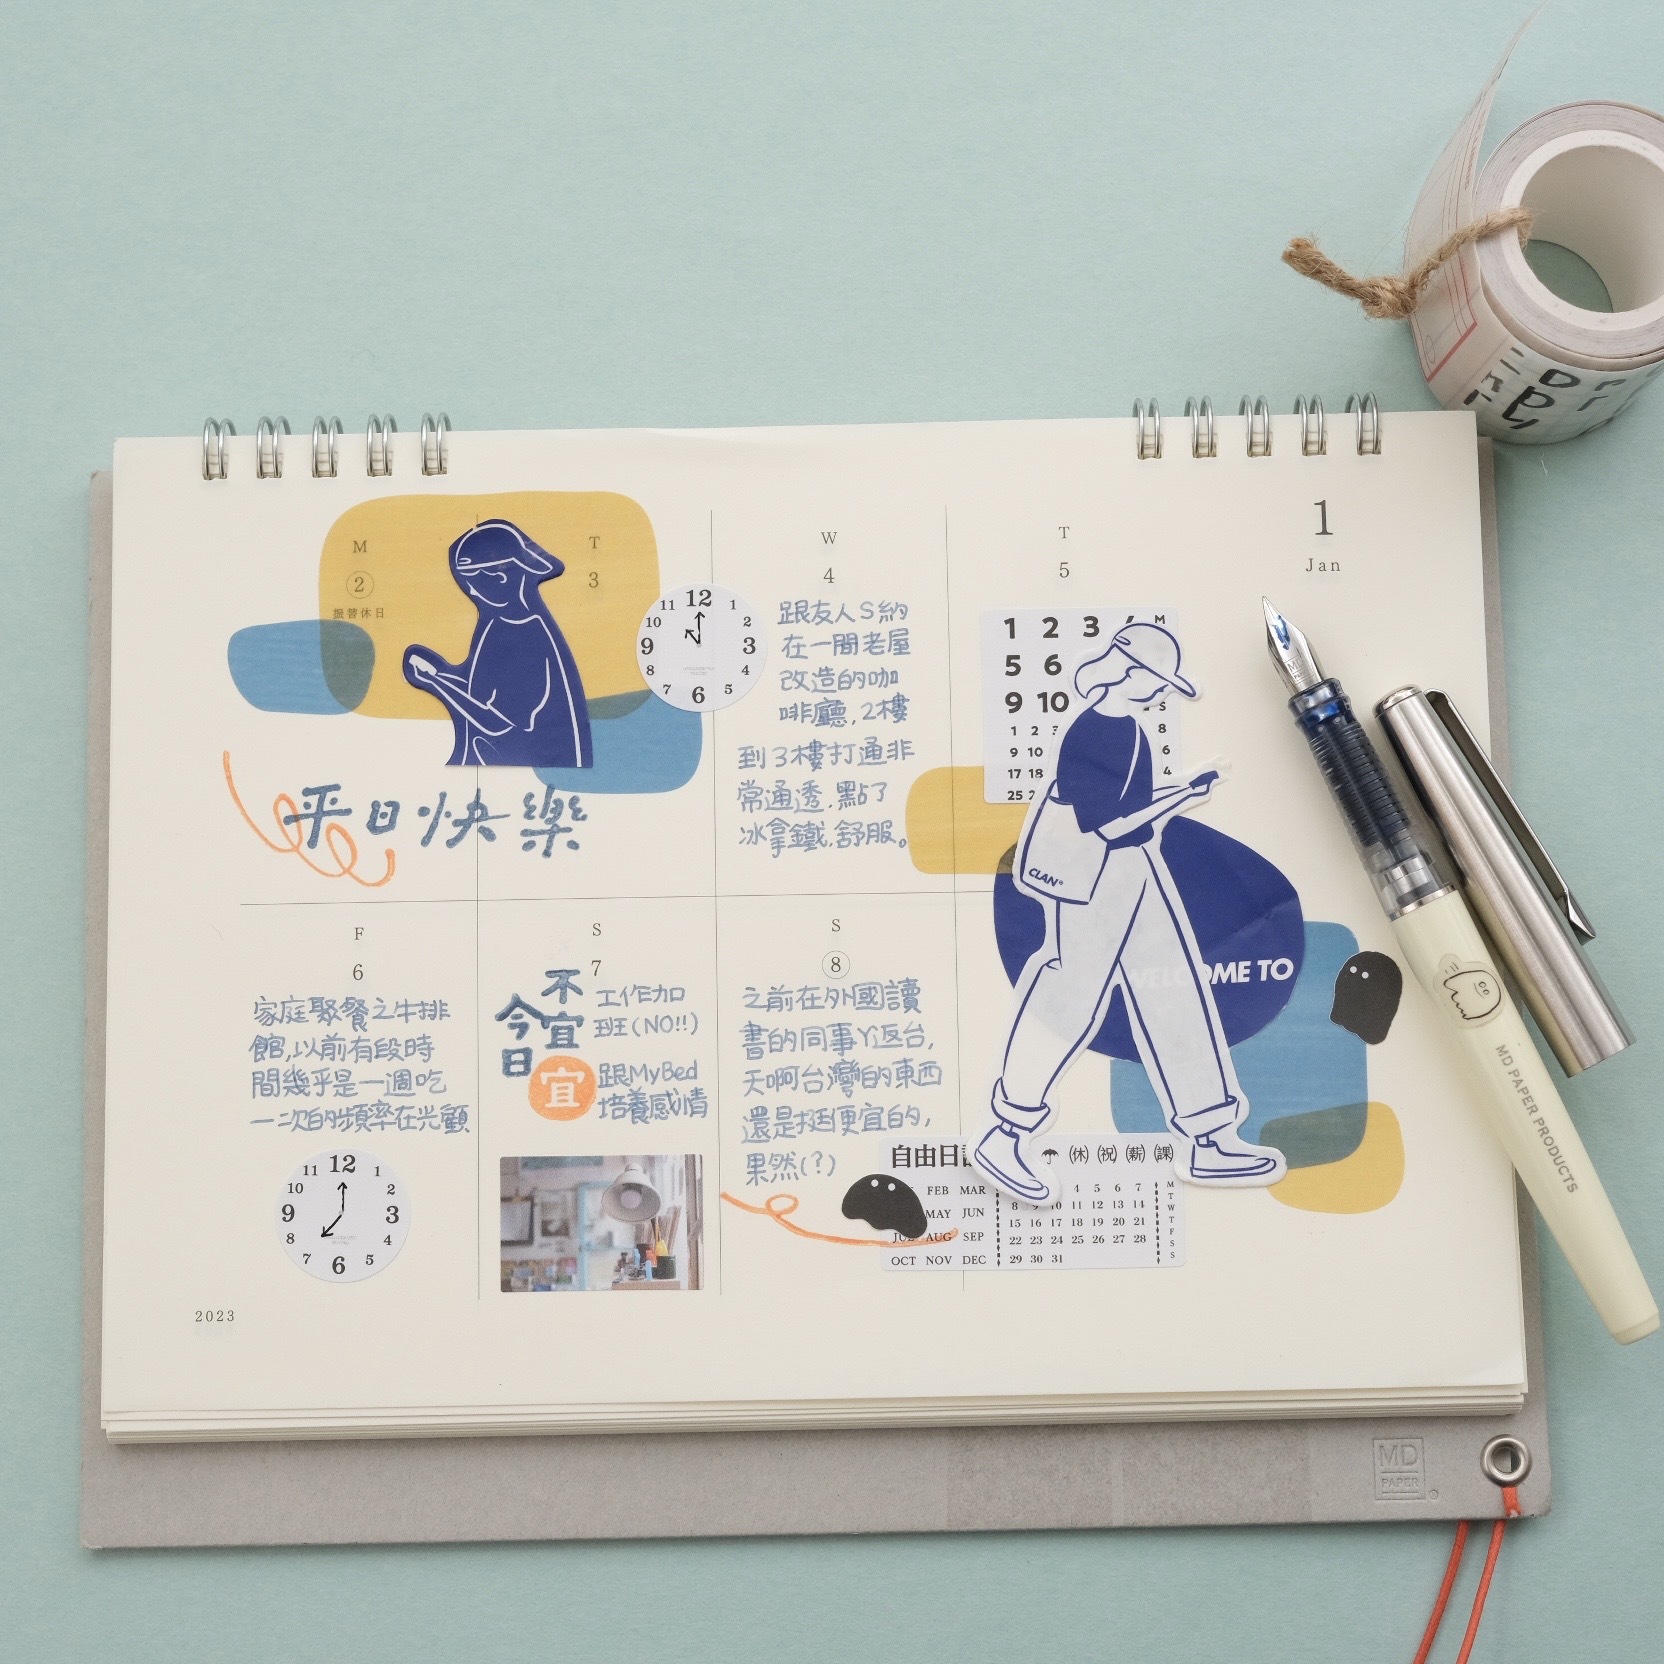 1
Jan
M
2
振替休日
T
3
平日快樂
12
1
2
3
4
5
6
7
8
9
10
11
W
4
跟友人S約
在一間老屋
改造的咖
啡廳,2樓
到3樓打通非
常通透.點了
冰拿鐵.舒服。
T
5
1 2 3
5 6
9 10
1 2 3
9 10
17 18
25 2
M
S
8
6
4
CLAN®
WELCOME TO
F
6
家庭聚餐之牛排
館,以前有段時
間幾乎是一週吃
一次的頻率在光顧
12
1
2
3
4
5
6
7
8
9
10
11
S
7
今日
不宜
工作加
班(NO!!)
宜
跟MyBed
培養感情
S
8
之前在外國讀
書的同事Y返台,
天啊台灣的東西
還是挺便宜的,
果然(?)
自由日
(休) (祝) (薪) (課)
FEB MAR
MAY JUN
JUL AUG SEP
OCT NOV DEC
4 5 6 7
8 9 10 11 12 13 14
15 16 17 18 19 20 21
22 23 24 25 26 27 28
29 30 31
M
T
W
T
F
S
S
2023
MD
PAPER
®
MD
MD PAPER PRODUCTS